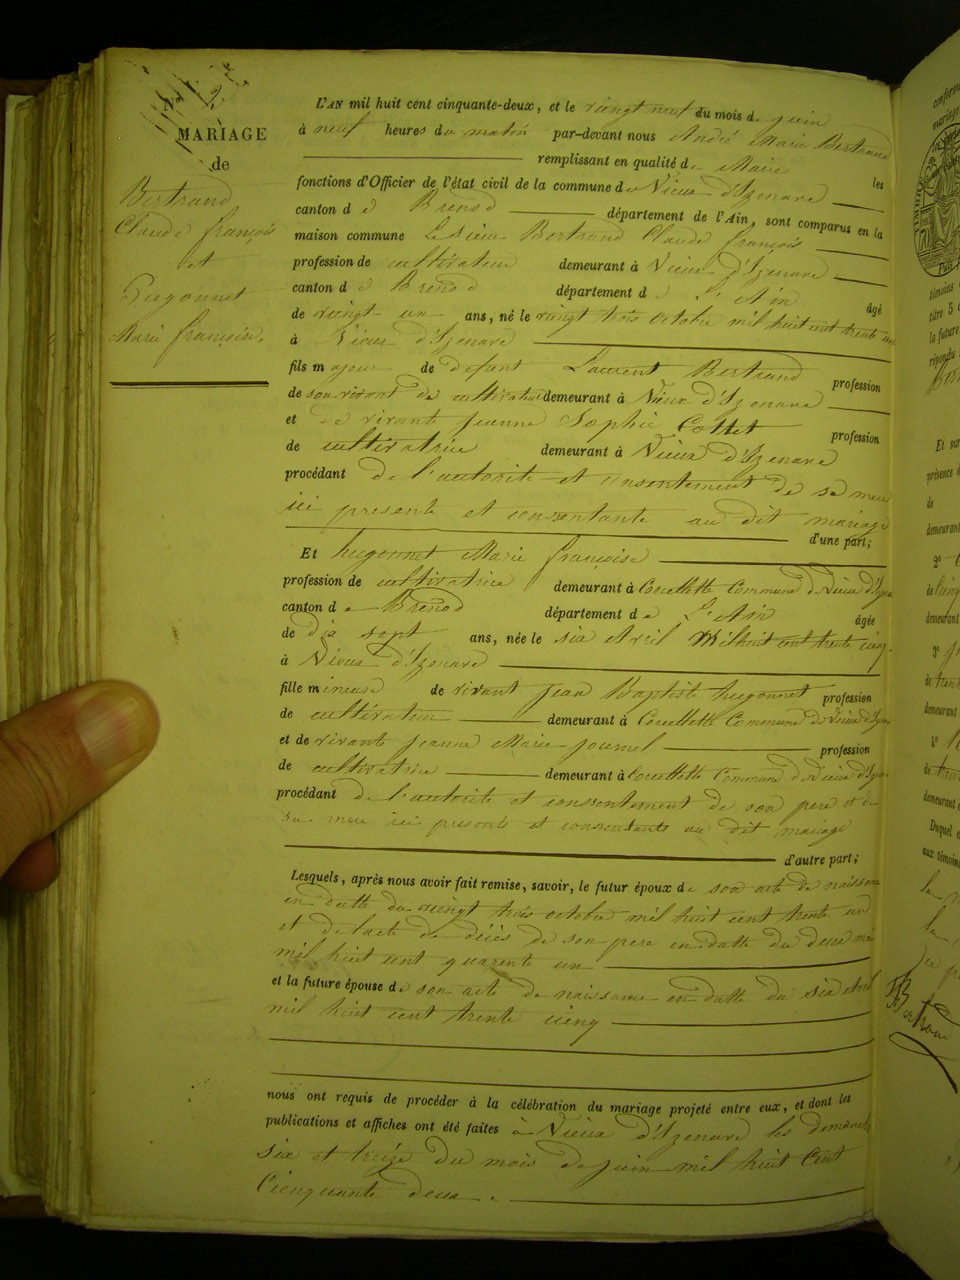 N° 2
MARIAGE
de
Bertrand
Claude françois
et
Hugonnet
Marie françoise.
L'AN mil huit cent cinquante-deux, et le vingt neuf du mois de juin
à neuf heures du matin par-devant nous André Marie Bertrand
remplissant en qualité de Maire les
fonctions d'Officier de l'état civil de la commune de Vieux d'Izenave
canton d e Brenod département de l'Ain, sont comparus en la
maison commune Le sieur Bertrand Claude françois
profession de cultivateur demeurant à Vieux d'Izenave
canton d e Brenod département d e L'Ain âgé
de vingt un ans, né le vingt trois octobre mil huit cent trente un
à Vieux d'Izenave
fils majeur de defunt Laurent Bertrand profession
de son vivant de cultivateur demeurant à Vieux d'Izenave
et de vivante Jeanne Sophie Cottet profession
de cultivatrice demeurant à Vieux d'Izenave
procédant de l'autorité et consentement de sa mere
ici presente et consentante au dit mariage
d'une part;
Et hugonnet Marie françoise
profession de cultivatrice demeurant à Corcellette Commune de Vieux d'Izenave
canton d e Brenod département d e L'Ain âgée
de dix sept ans, née le six Avril Mil huit cent trente cinq.
à Vieux d'Izenave
fille mineuse de vivant jean Baptiste hugonnet profession
de cultivateur demeurant à Corcellette Commune de Vieux d'Izenave
et de vivante jeanne Marie journel profession
de cultivatrice demeurant à Corcellette Commune de Vieux d'Izenave
procédant de l'autorité et consentement de son pere et de
sa mere ici presents et consentants au dit mariage
d'autre part;
Lesquels, après nous avoir fait remise, savoir, le futur époux de son acte de naissance
en datte du vingt trois octobre mil huit cent trente un
et de l'acte de décès de son pere en datte du deux mai
mil huit cent quarente un
et la future épouse de son acte de naissance en datte du six avril
mil huit cent trente cienq
nous ont requis de procéder à la célébration du mariage projeté entre eux, et dont les
publications et affiches ont été faites à Vieux d'Izenave les dimanches
six et treize du mois de juin mil huit cent
Cienquante deux.